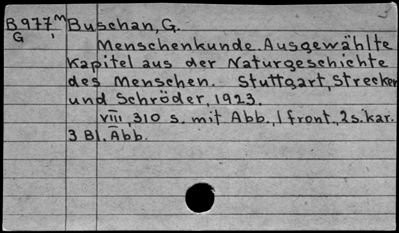 B977m Buschan, G.
G 1 Menschenkunde. Ausgewählte
Kapitel aus der Naturgeschichte
des Menschen. Stuttgart, Strecker
und Schröder, 1923.
VIII, 310 s. mit Abb., 1 front., 2 s. kar.
3 Bl. Abb.